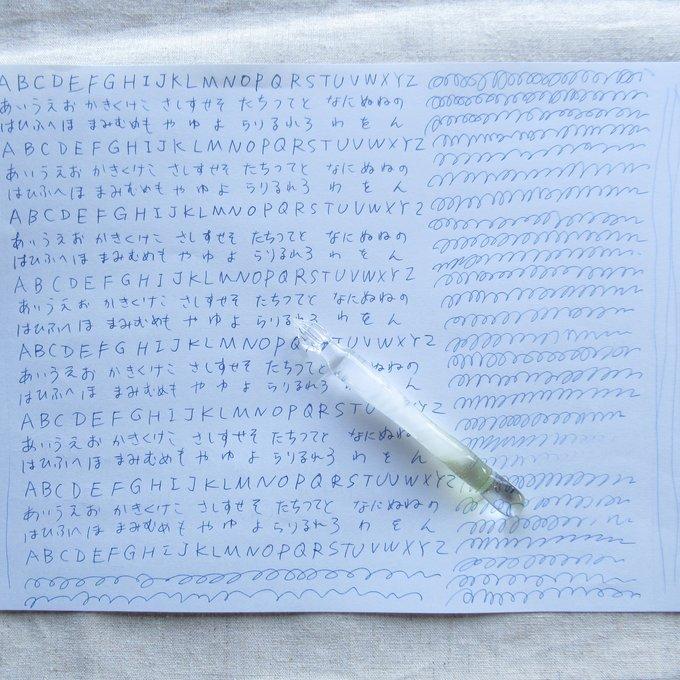 ABCDEFGHIJKLMNOPQRSTUVWXYZ
あいうえお かきくけこ さしすせそ たちつてと なにぬねの
はひふへほ まみむめも や ゆ よ らりるれろ わ を ん
ABCDEFGHIJKLMNOPQRSTUVWXYZ
あいうえお かきくけこ さしすせそ たちつてと なにぬねの
はひふへほ まみむめも や ゆ よ らりるれろ わ を ん
ABCDEFGHIJKLMNOPQRSTUVWXYZ
あいうえお かきくけこ さしすせそ たちつてと なにぬねの
はひふへほ まみむめも や ゆ よ らりるれろ わ を ん
ABCDEFGHIJKLMNOPQRSTUVWXYZ
あいうえお かきくけこ さしすせそ たちつてと なにぬねの
はひふへほ まみむめも や ゆ よ らりるれろ わ を ん
ABCDEFGHIJKLMNOPQRSTUVWXYZ
あいうえお かきくけこ さしすせそ たちつてと なにぬねの
はひふへほ まみむめも や ゆ よ らりるれろ わ を ん
ABCDEFGHIJKLMNOPQRSTUVWXYZ
あいうえお かきくけこ さしすせそ たちつてと なにぬね
はひふへほ まみむめも や ゆ よ らりるれろ わ を ん
ABCDEFGHIJKLMNOPQRSTUVWXYZ
あいうえお かきくけこ さしすせそ たちつてと なにぬねの
はひふへほ まみむめも や ゆ よ らりるれろ わ を ん
ABCDEFGHIJKLMNOPQRSTUVWXYZ